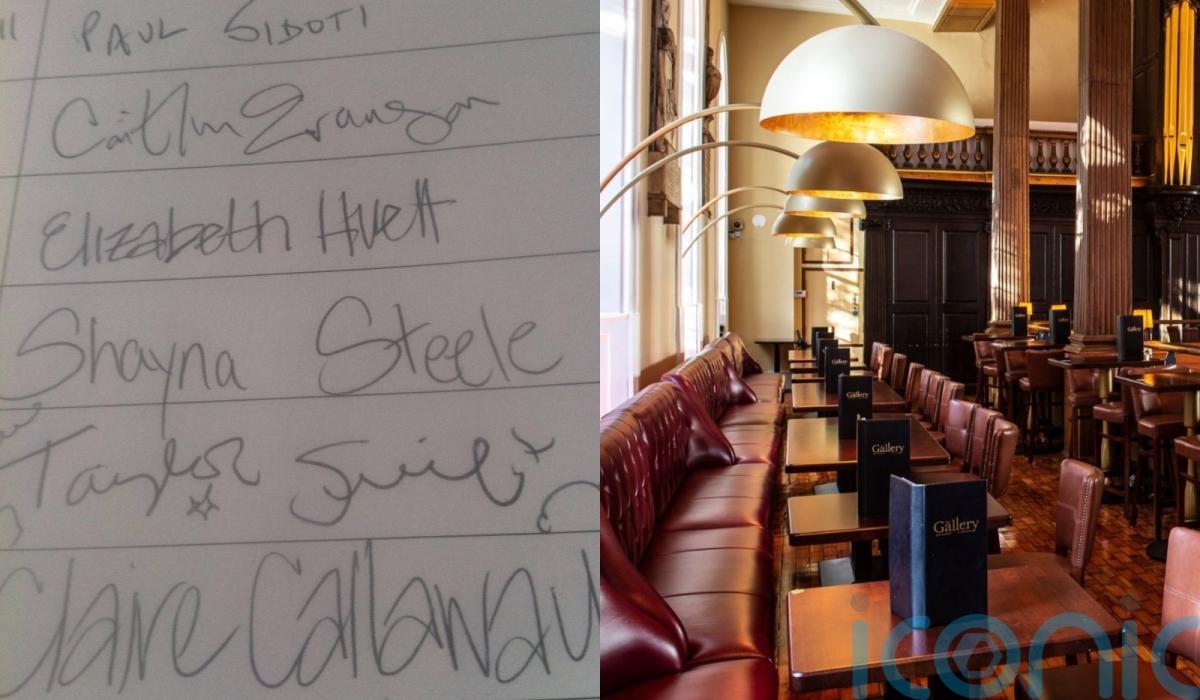 PAUL SIDOTI
Caitlin Evanson
Elizabeth Huett
Shayna Steele
Taylor Swift
Claire Callaway
Gallery
Gallery
Gallery
Gallery
iconic